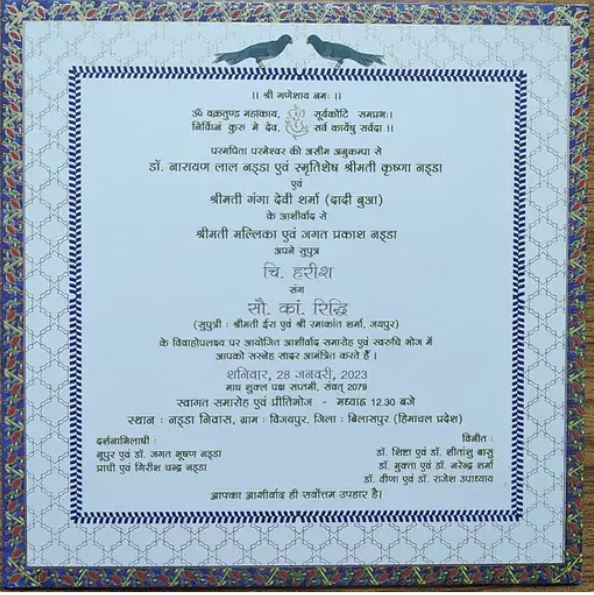 ।। श्री गणेशाय नमः ।।
ॐ वक्रतुण्ड महाकाय, सूर्यकोटि समप्रभः।
निर्विघ्नं कुरु मे देव, सर्व कार्येषु सर्वदा ।।
परमपिता परमेश्वर की असीम अनुकम्पा से
डॉ. नारायण लाल नड्डा एवं स्मृतिशेष श्रीमती कृष्णा नड्डा
एवं
श्रीमती गंगा देवी शर्मा (दादी बुआ)
के आशीर्वाद से
श्रीमती मल्लिका एवं जगत प्रकाश नड्डा
अपने सुपुत्र
चि. हरीश
संग
सौ. कां. रिद्धि
(सुपुत्री : श्रीमती ईरा एवं श्री रमाकांत शर्मा, जयपुर)
के विवाहोपलक्ष्य पर आयोजित आशीर्वाद समारोह एवं स्वरुचि भोज में
आपको सस्नेह सादर आमंत्रित करते हैं ।
शनिवार, 28 जनवरी, 2023
माघ शुक्ल पक्ष सप्तमी, संवत् 2079
स्वागत समारोह एवं प्रीतिभोज - मध्याह्न 12.30 बजे
स्थान : नड्डा निवास, ग्राम : विजयपुर. जिला : बिलासपुर (हिमाचल प्रदेश)
दर्शनाभिलाषी :
नूपुर एवं डॉ. जगत भूषण नड्डा
प्राची एवं गिरीश चन्द्र नड्डा
विनीत :
डॉ. शिप्रा एवं डॉ. शीतांशु बासु
डॉ. मुक्ता एवं डॉ. नरेन्द्र शर्मा
डॉ. वीणा एवं डॉ. राजेश उपाध्याय
आपका आशीर्वाद ही सर्वोत्तम उपहार है।